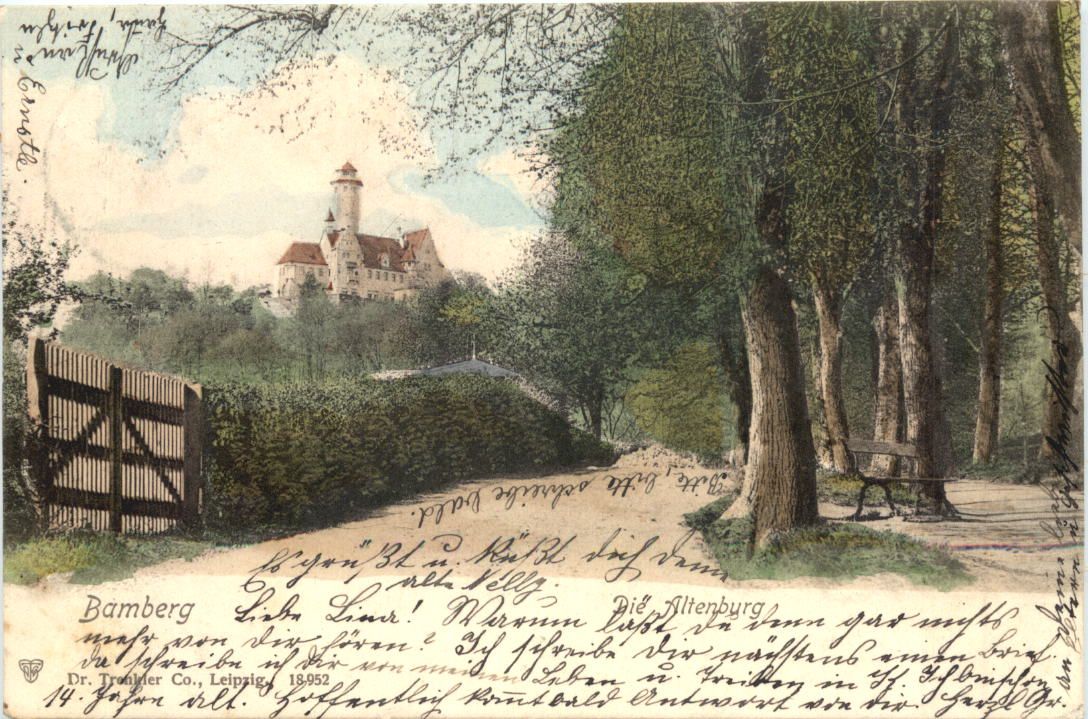 Bitte, bitte schreibe bald.
Es grüßt u. küßt dich deine
alte Nelly.
Bamberg
Die Altenburg
Liebe Lina! Warum laßt du denn gar nichts
mehr von dir hören? Ich schreibe dir nächstens einen Brief.
da schreibe ich dir von meinen Leben u. Treiben in
Dr. Trenkler Co., Leipzig. 18952
14. Jahre alt. Hoffentlich kommt bald Antwort von dir. Herzl. Gr.
an
Eltern u.
u. Ernstle.